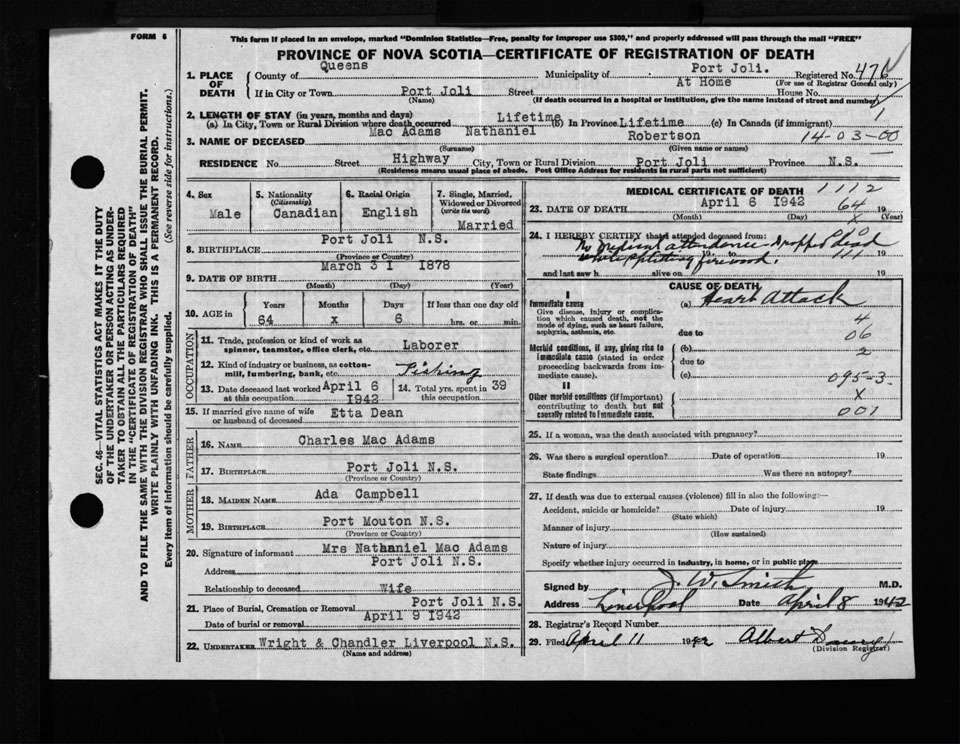 FORM 6
This form if placed in an envelope, marked "Dominion Statistics—Free, penalty for improper use $300," and properly addressed will pass through the mail "FREE"
PROVINCE OF NOVA SCOTIA—CERTIFICATE OF REGISTRATION OF DEATH
SEC. 46—VITAL STATISTICS ACT MAKES IT THE DUTY
OF THE UNDERTAKER OR PERSON ACTING AS UNDER-
TAKER TO OBTAIN ALL THE PARTICULARS REQUIRED
IN THE "CERTIFICATE OF REGISTRATION OF DEATH"
AND TO FILE THE SAME WITH THE DIVISION REGISTRAR WHO SHALL ISSUE THE BURIAL PERMIT.
WRITE PLAINLY WITH UNFADING INK. THIS IS A PERMANENT RECORD.
Every item of Information should be carefully supplied. (See reverse side for instructions.)
1. PLACE OF DEATH
County of Queens Municipality of Port Joli. Registered No. 476
(For use of Registrar General only)
If in City or Town Port Joli Street At Home House No.
(Name) (If death occurred in a hospital or institution, give the name instead of street and number)
2. LENGTH OF STAY (in years, months and days)
(a) In City, Town or Rural Division where death occurred Lifetime (b) In Province Lifetime (c) In Canada (if immigrant) 1
3. NAME OF DECEASED Mac Adams Nathaniel Robertson 14-03-00
(Surname) (Given name or names)
RESIDENCE No. Street Highway City, Town or Rural Division Port Joli Province N.S.
(Residence means usual place of abode. Post Office Address for residents in rural parts not sufficient)
4. Sex Male
5. Nationality (Citizenship) Canadian
6. Racial Origin English
7. Single, Married, Widowed or Divorced (write the word) Married
8. BIRTHPLACE Port Joli N.S.
(Province or Country)
9. DATE OF BIRTH March 31 1878
(Month) (Day) (Year)
10. AGE in Years 64 Months x Days 6 If less than one day old hrs. or min.
OCCUPATION
11. Trade, profession or kind of work as spinner, teamster, office clerk, etc. Laborer
12. Kind of industry or business, as cotton-mill, lumbering, bank, etc. Fishing
13. Date deceased last worked at this occupation April 6 1942
14. Total yrs. spent in this occupation 39
15. If married give name of wife or husband of deceased Etta Dean
FATHER
16. NAME Charles Mac Adams
17. BIRTHPLACE Port Joli N.S.
(Province or Country)
MOTHER
18. MAIDEN NAME Ada Campbell
19. BIRTHPLACE Port Mouton N.S.
(Province or Country)
20. Signature of informant Mrs Nathaniel Mac Adams
Address Port Joli N.S.
Relationship to deceased Wife
21. Place of Burial, Cremation or Removal Port Joli N.S.
Date of burial or removal April 9 1942
22. UNDERTAKER Wright & Chandler Liverpool N.S.
(Name and address)
MEDICAL CERTIFICATE OF DEATH 1112
23. DATE OF DEATH April 6 1942 64 19
(Month) (Day) (Year)
X
24. I HEREBY CERTIFY that I attended deceased from:
No medical attendance - Dropped dead
19 to 19
while splitting firewood. 111
and last saw h alive on 19
CAUSE OF DEATH
I
Immediate cause (a) Heart Attack
Give disease, injury or complication which caused death, not the mode of dying, such as heart failure, asphyxia, asthenia, etc.
4
due to 06
Morbid conditions, if any, giving rise to immediate cause (stated in order proceeding backwards from immediate cause).
(b) 2
due to
(c) 095-3
II
Other morbid conditions (if important) contributing to death but not causally related to immediate cause.
X
001
25. If a woman, was the death associated with pregnancy?
26. Was there a surgical operation? Date of operation 19
State findings Was there an autopsy?
27. If death was due to external causes (violence) fill in also the following:—
Accident, suicide or homicide? Date of injury 19
(State which)
Manner of injury
(How sustained)
Nature of injury
Specify whether injury occurred in industry, in home, or in public place
Signed by J. W. Smith M.D.
Address Liverpool Date April 8 1942
28. Registrar's Record Number
29. Filed April 11 1942 Albert
(Division Registrar)